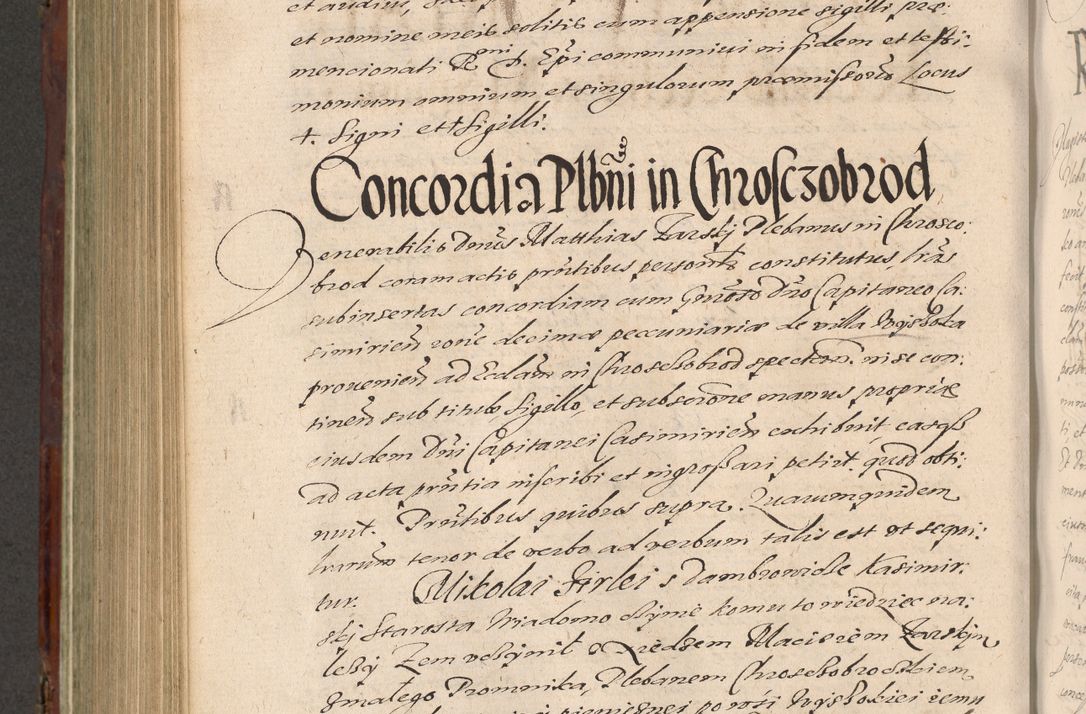 et nomine meis solitis cum appensione sigilli præ:
mencionati Rni D. Epi communivi in fidem et testi:
monium omnium et singulorum præmissorũ Locus
+. Signi et + Sigilli.
Concordia Plbãni in Chrosczobrod
Venerabilis Dnus Matthias Zarskj Plebanus in Chrosco:
brod coram actis pñtibus personlr constitutus, lrãs
subinsertas concordiam cum Gnroso Dno Capitaneo Ca:
simirieñ rõne decimæ peccuniariæ de villa Wysłoka
provenieñ ad Ecclam in Chroscobrod specteñ. in se con:
tineñ sub titulo Sigillo, et subscrõne manus propriæ
eiusdem Dñi Capitanei Casimirieñ exhibuit, easqß
ad acta pñtia inscribi et ingrossari petiit. quod obti:
nuit. Pñtibus quibus supra. Quarumquidem
lrarum tenor de verbo ad verbum talis est vt sequi:
tur. Mikolai Firlei s Dambrowicze Kazimir:
skj Starosta Wiadomo czÿnie komu to wiedziec na:
leżÿ Zem vczÿnił z Xiedzem Macieiem Zarskjm
Plebanem Chroscobrodzkiem